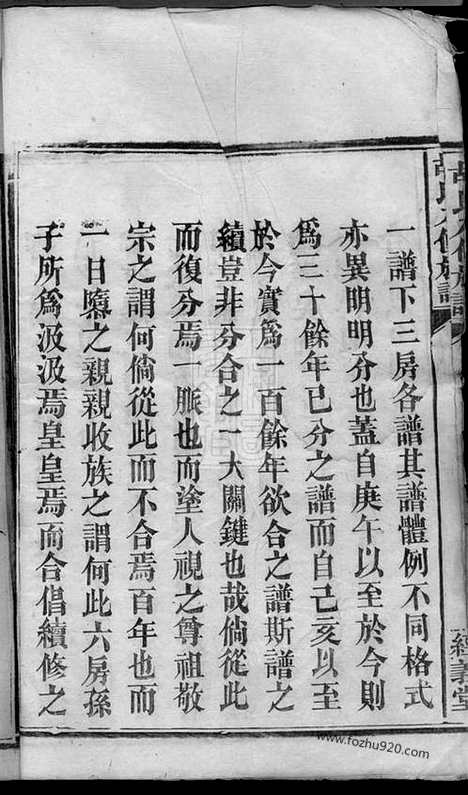 一譜下三房各譜其譜體例不同格式
亦異明明分也蓋自庚午以至於今則
為三十餘年已分之譜而自己亥以至
於今實為一百餘年欲合之譜斯譜之
續豈非分合之一大關鍵也哉倘從此
而復分焉一脈也而塗人視之尊祖敬
宗之謂何倘從此而不合焉百年也而
一日隳之親親收族之謂何此六房孫
子所為汲汲焉皇皇焉而合倡續修之
經義堂
www.fozhu920.com